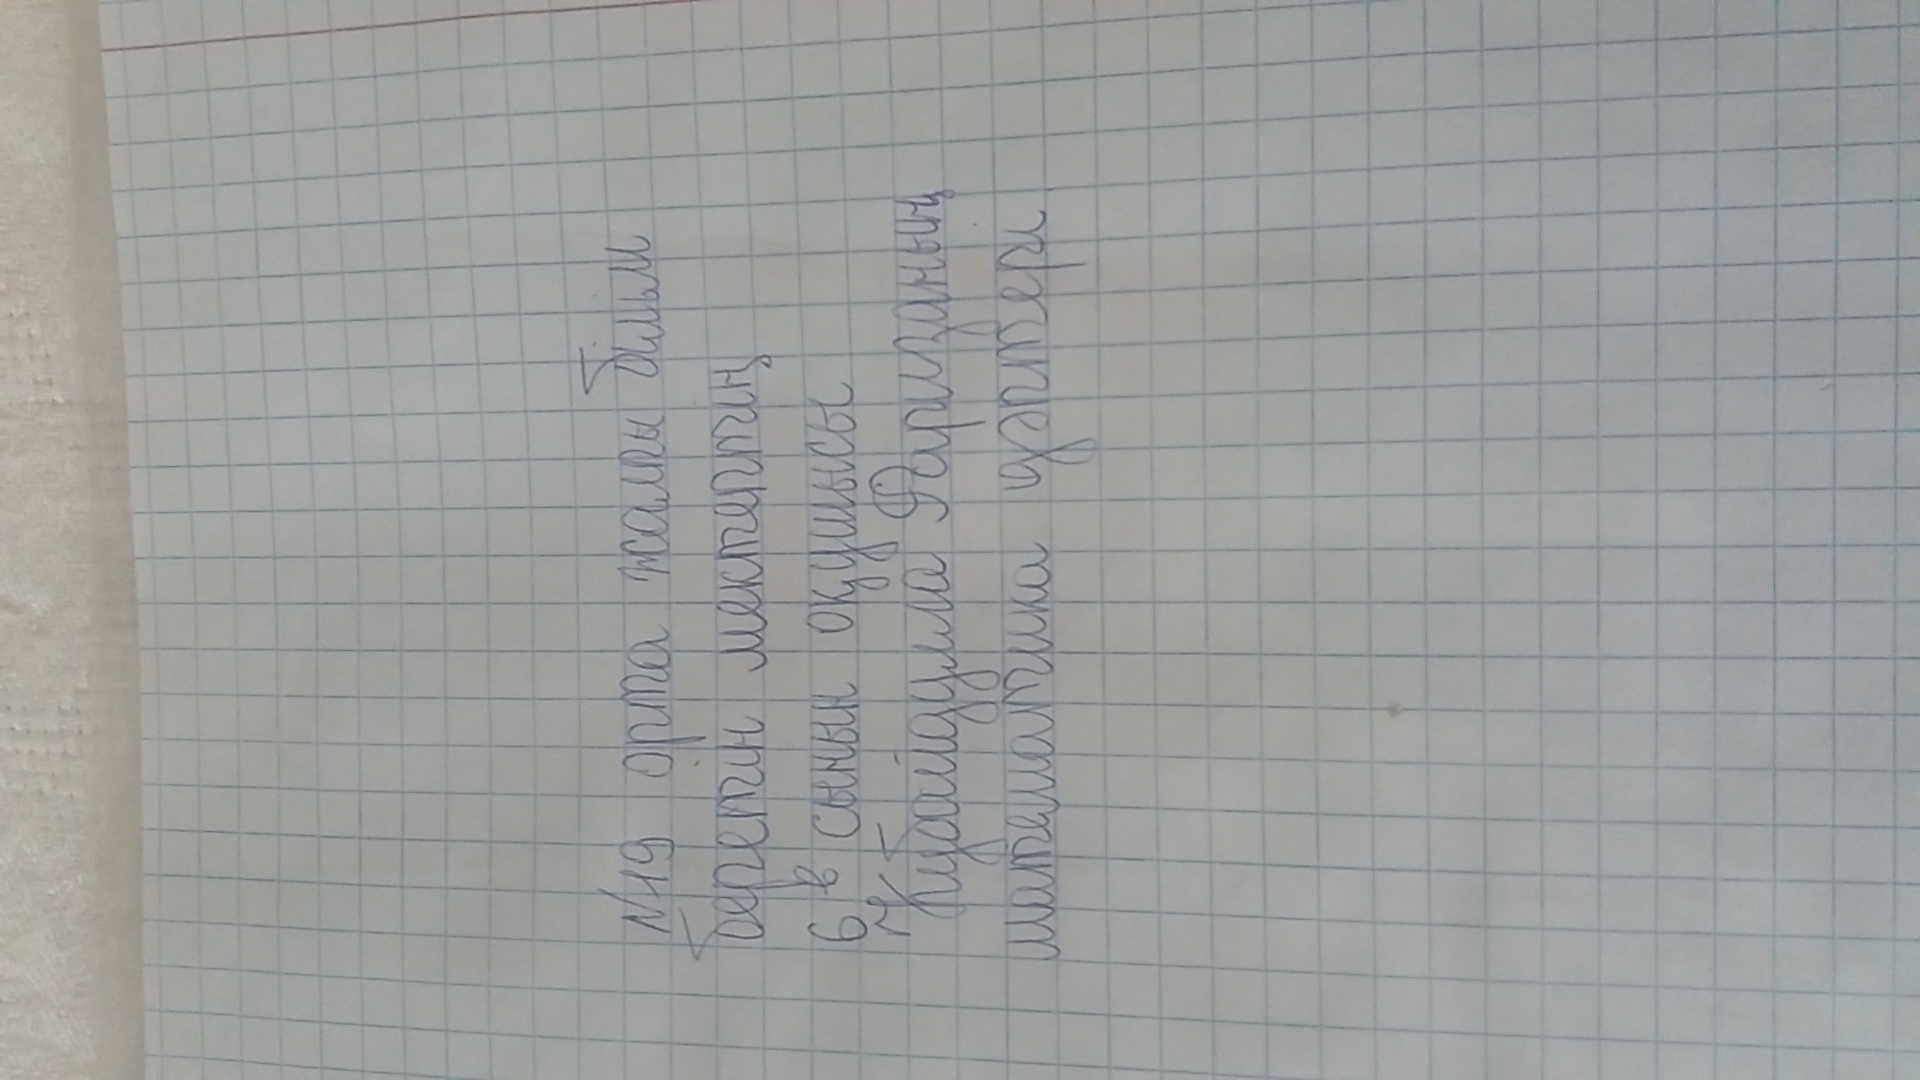 №19 орта жалпы билим
беретин мектептиң
6 в сынып окушысы
Кибайдулла Фаризаның
математика дәптери